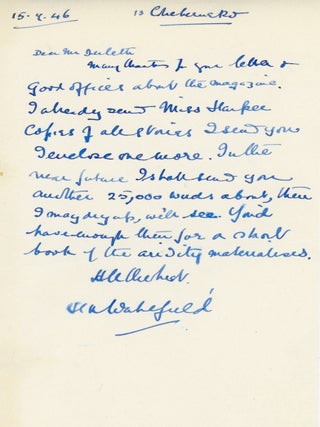 15.X.46 13 Cheberucko
Dear Mr Derleth
Many thanks for your letter &
good offices about the magazine.
I already sent Miss Harker
Copies of all stories I send you
I enclose one more. In the
near future I shall send you
another 25,000 words about, then
I may dry up, will see. You'd
have enough then for a short
book if the aridity materialises.
All the best.
H R Wakefield